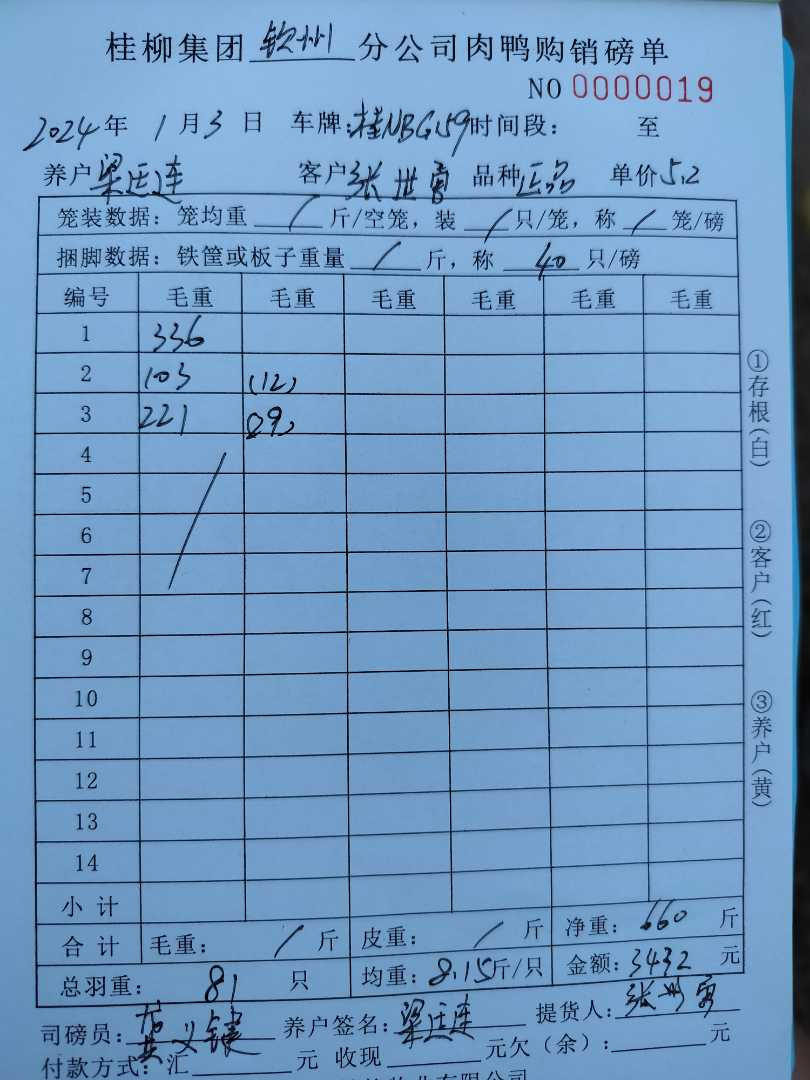 桂柳集团 钦州 分公司肉鸭购销磅单
NO 0000019
2024年 1月3日 车牌:桂NBG159 时间段: 至
养户 梁廷连 客户 张世勇 品种 正品 单价 5.2
笼装数据: 笼均重 / 斤/空笼, 装 / 只/笼, 称 / 笼/磅
捆脚数据: 铁筐或板子重量 / 斤, 称 40 只/磅
编号 毛重 毛重 毛重 毛重 毛重 毛重
1 336
2 103 (12)
3 221 (29)
4
5
6
7
8
9
10
11
12
13
14
小计
合计 毛重: / 斤 皮重: / 斤 净重: 660 斤
总羽重: 81 只 均重: 8.15斤/只 金额: 3432 元
司磅员: 养户签名: 梁廷连 提货人: 张世勇
付款方式: 汇 元 收现 元欠(余): 元
①存根(白)
②客户(红)
③养户(黄)